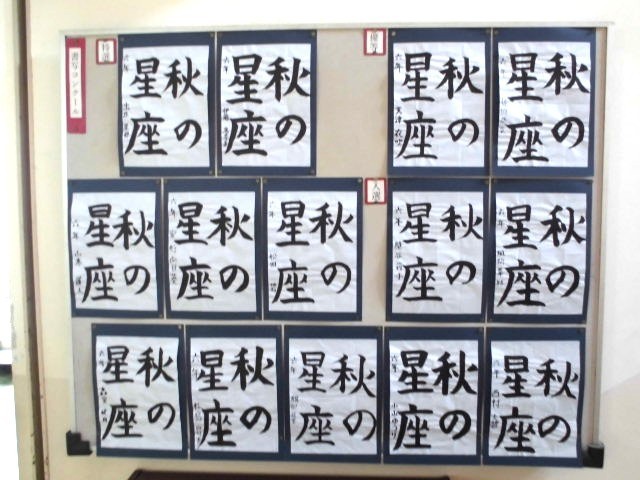 書写コンクール
特選
秋の
星座
六年
秋の
星座
六年
優等
秋の
星座
六年
秋の
星座
六年
秋の
星座
六年
秋の
星座
六年
秋の
星座
六年
入選
秋の
星座
六年
秋の
星座
六年
秋の
星座
六年
秋の
星座
六年
秋の
星座
六年
秋の
星座
六年
秋の
星座
六年
西村